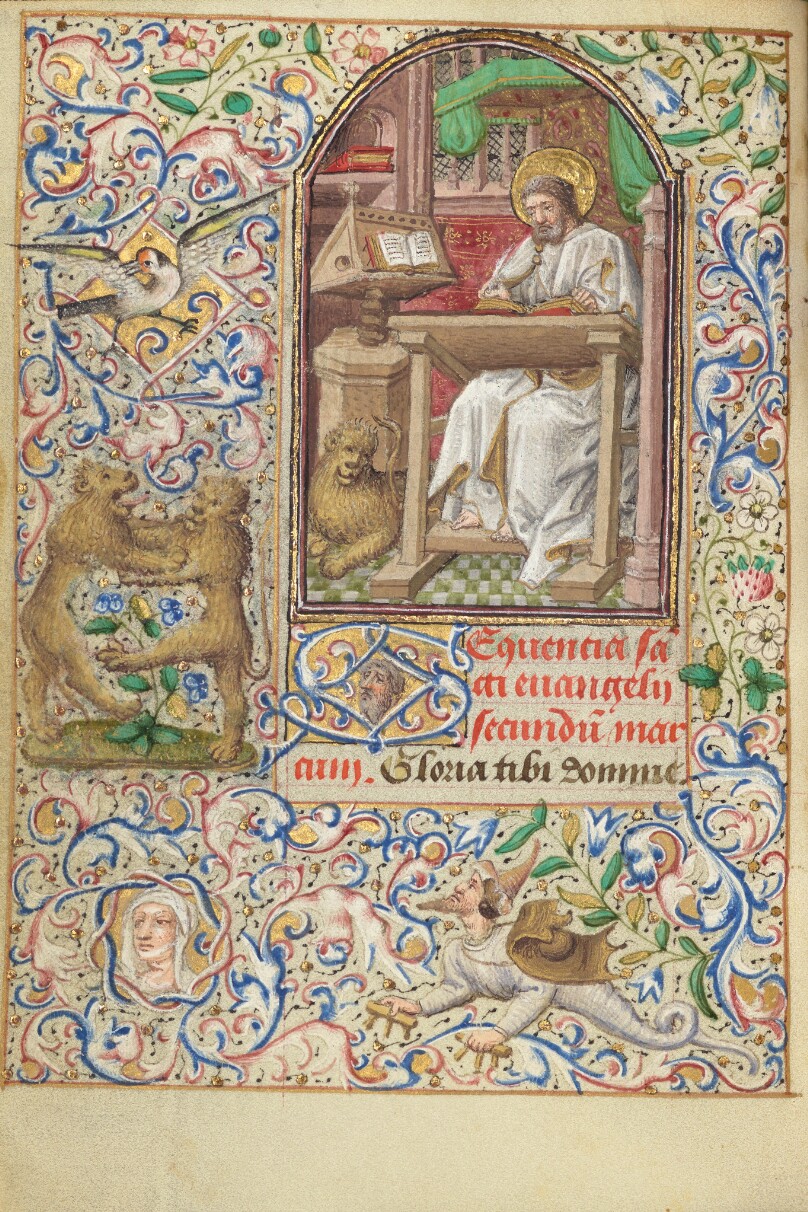 SEquencia sā
cti euangelij
secundū mar
cum. Gloria tibi domine.